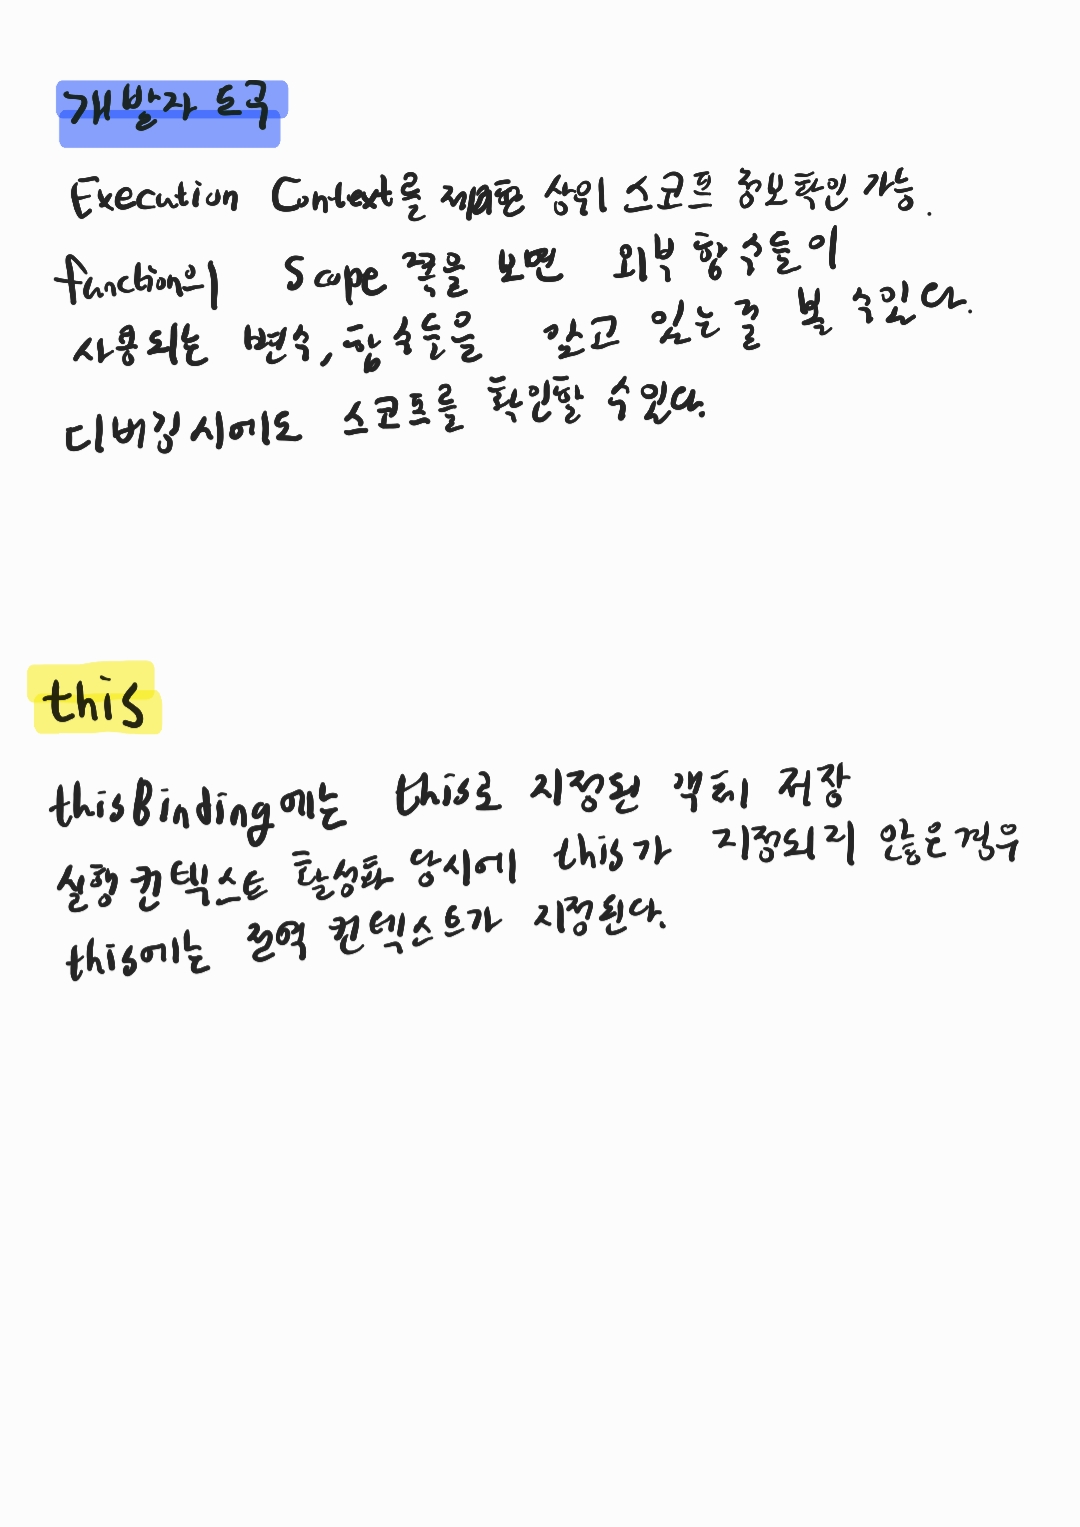 개발자 도구
Execution Context를 제외한 상위 스코프 정보확인 가능.
function의 Scope 쪽을 보면 외부 함수들이
사용되는 변수, 함수들을 갖고 있는 걸 볼 수있다.
디버깅 시에도 스코프를 확인할 수있다.
this
thisBinding에는 this로 지정된 객체 저장
실행 컨텍스트 활성화 당시에 this가 지정되지 않은 경우
this에는 전역 컨텍스트가 지정된다.